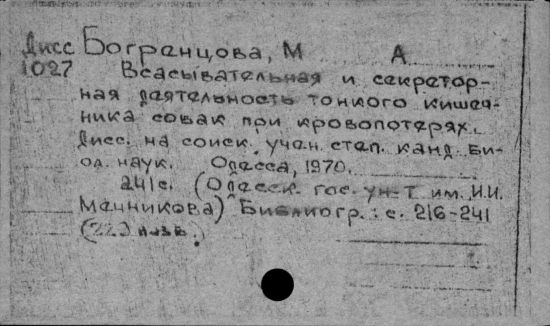 Дисс Богранцова, М А
1027 Всасывательная и секретор-
ная деятельность тонкого кишеч-
ника собак при кровопотерях.
Дисс. на соиск. учен. степ. канд. Би-
ол. наук. Одесса, 1970.
241с. (Одесск. гос. ун-т им. И.И.
Мечникова) Библиогр.: с. 216-241
(222 назв.)